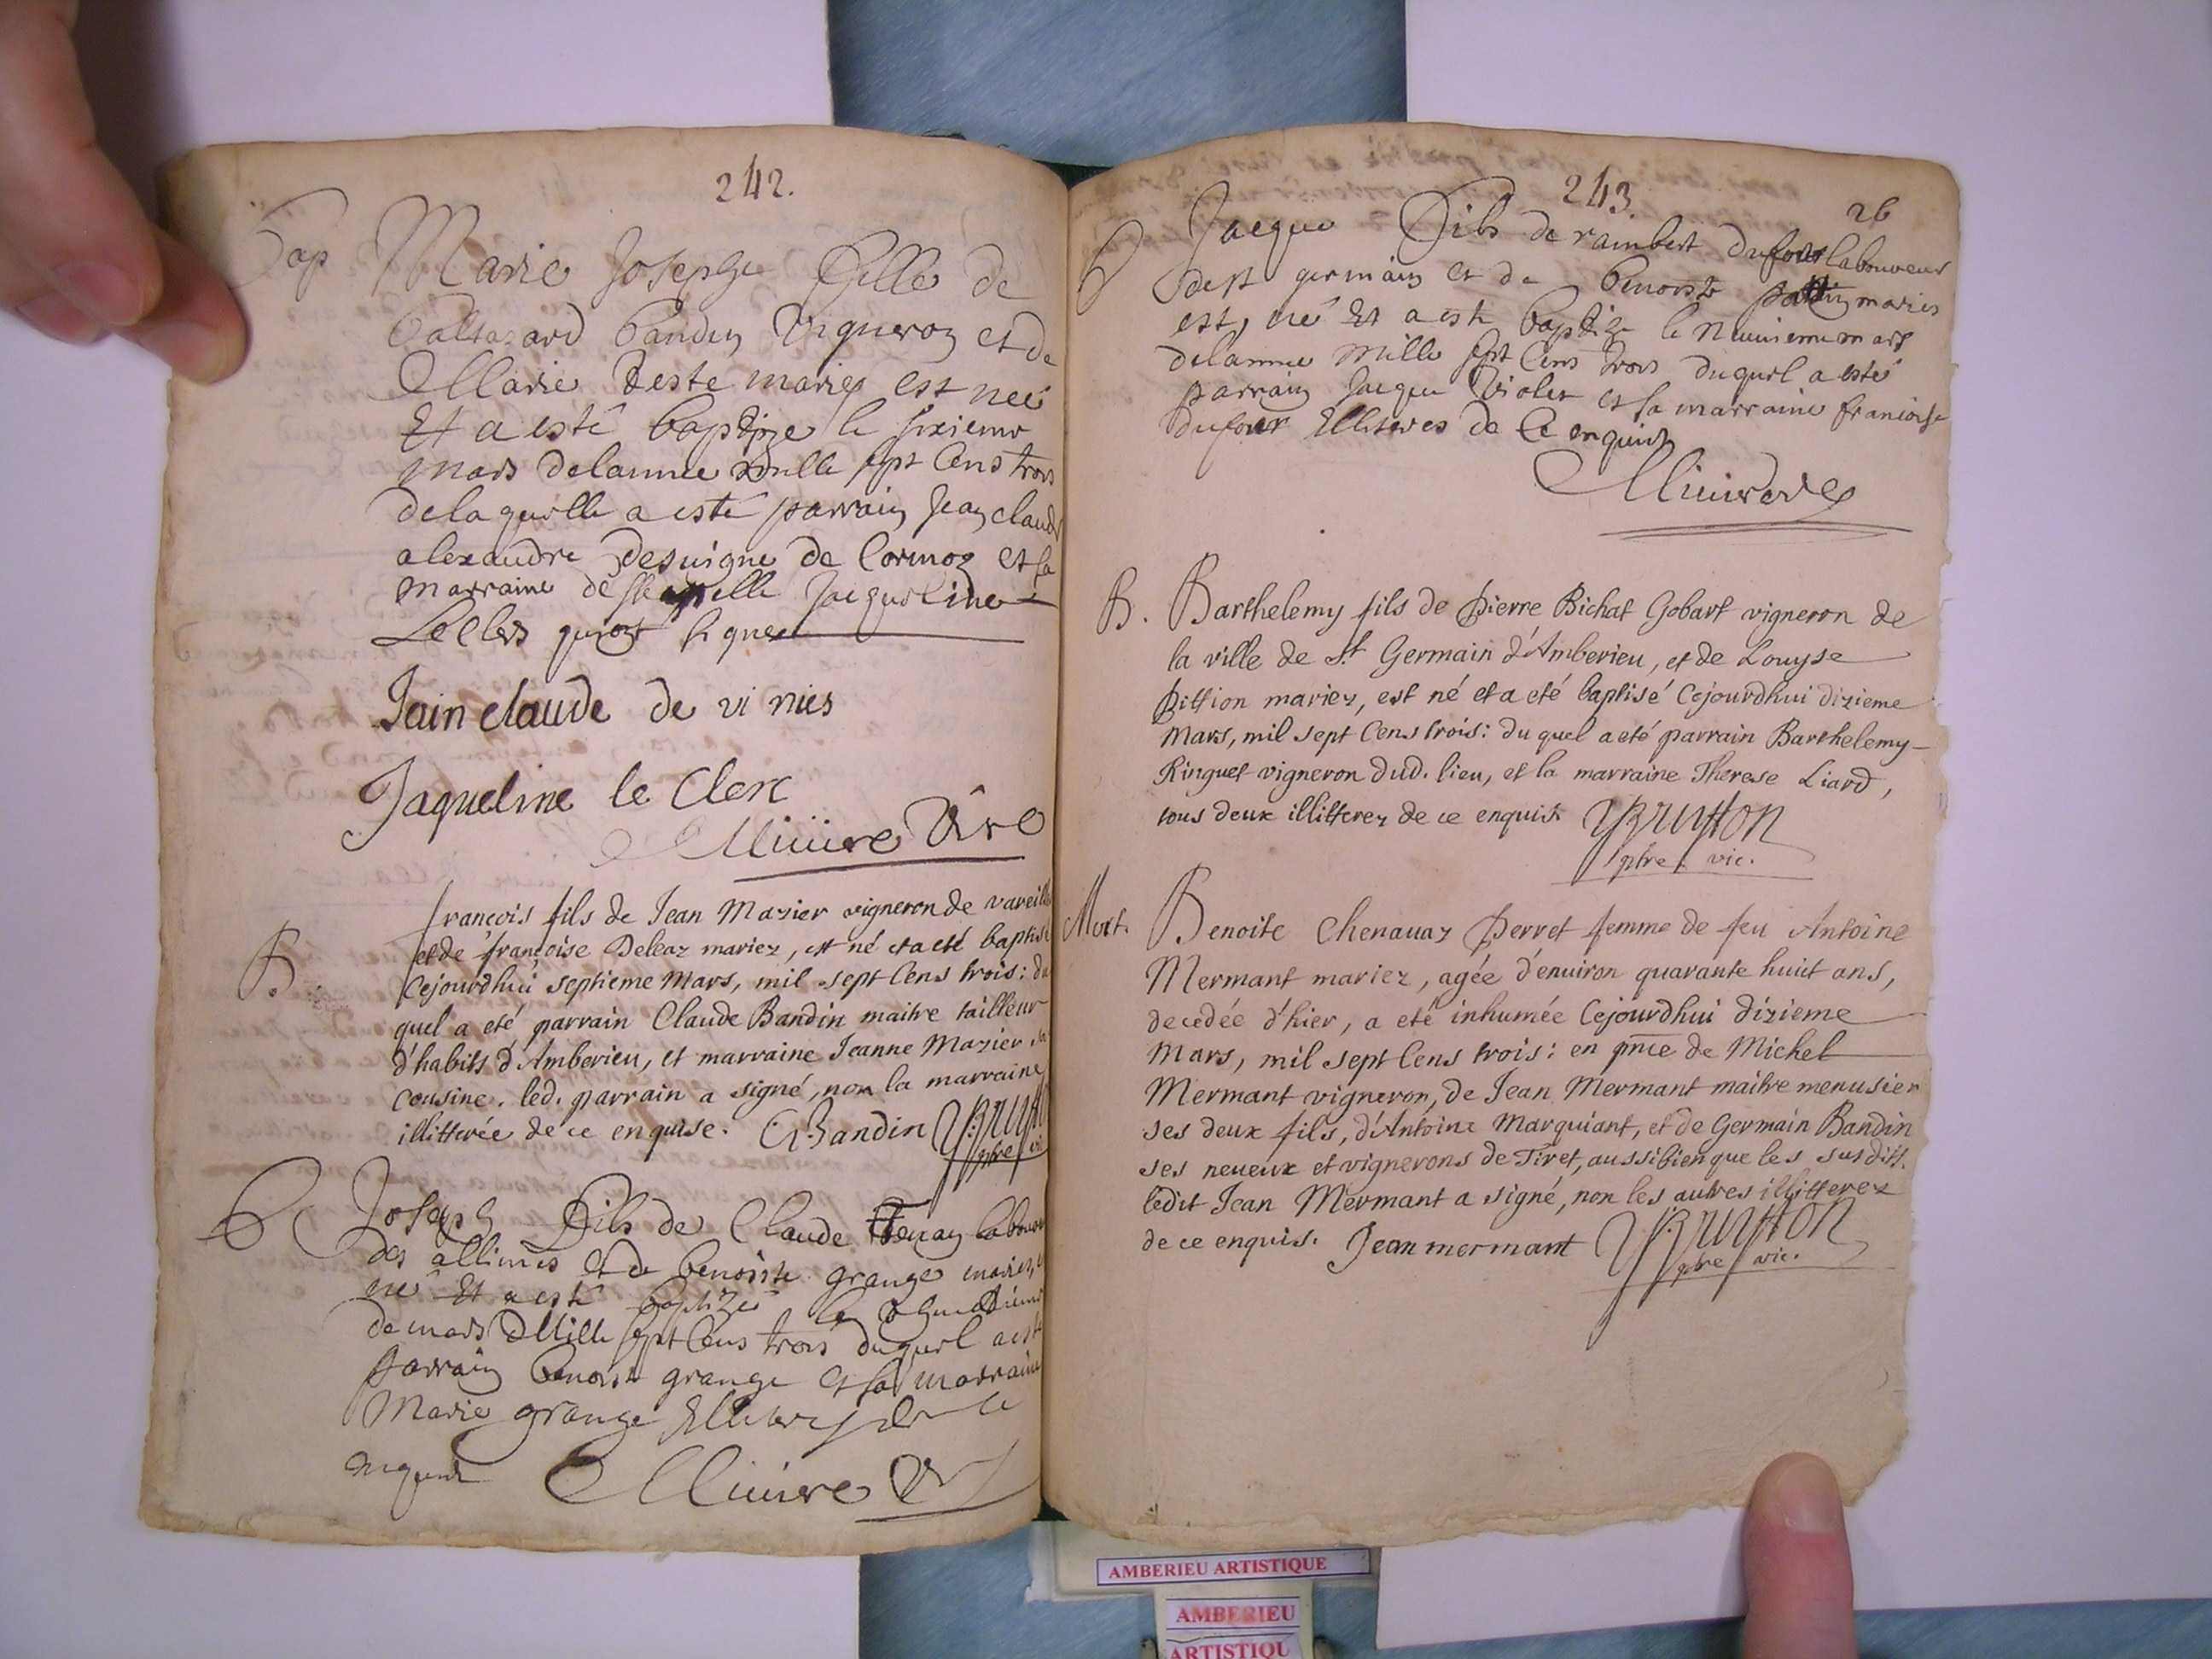 242.
Bap Marie Josephe fille de
baltazard bandin vigneron et de
Marie Teste mariez est neé
Et a esté baptize le sixieme
mars delannee mille sept cens trois
delaquelle a esté parrain Jean claude
alexandre desvigne de Cormoz et sa
marraine de Jacqueline
Lecler qui ont signe
Jain claude de vi nies
Jaqueline le Clerc
Miviere Curé
B. françois fils de Jean Mazier vigneron de vareille
et de françoise Deleaz mariez, est né et a eté baptisé
Cejourdhui septieme Mars, mil sept Cens trois: du
quel a eté parrain Claude Bandin maitre tailleur
d'habits d'Amberieu, et marraine Jeanne Mazier sa
cousine. led. parrain a signé, non la marraine
illitterée de ce enquise. C. Bandin Brutton
pbre vic
B Joseph fils de Claude Tenay laboureur
des allimes et de benoiste grange mariez,
né Et a esté baptizé le
de mars Mille sept Cens trois duquel a esté
parrain benoist grange et sa marraine
Marie grange Illiterez de ce
enquis Miviere
243.
26
B Jacque fils de rambert dufour laboureur
de st germain et de benoiste mariés
est né Et a esté baptize le neuvieme mars
delannee mille sept Cens trois duquel a esté
parrain Jacque Violet et sa marraine francoise
dufour Illiteres de Ce enquis
Miviere
B. Barthelemy fils de Pierre Bichat Gobart vigneron de
la ville de St. Germain d'Amberieu, et de Louyse
Pittion mariez, est né et a eté baptisé Cejourdhui dizieme
Mars, mil sept Cens trois: du quel a eté parrain Barthelemy
Ringuet vigneron dud. lieu, et la marraine Therese Liard,
tous deux illitterez de ce enquis. Brutton
pbre vic.
Mort. Benoite Chenavaz Perret femme de feu Antoine
Mermant mariez, agée d'environ quarante huit ans,
decedée d'hier, a eté inhumée Cejourdhui dizieme
Mars, mil sept Cens trois: en pnce de Michel
Mermant vigneron, de Jean Mermant maitre menusier
ses deux fils, d'Antoine Marquiant, et de Germain Bandin
ses neveux et vignerons de Tiret, aussi bien que les susdits.
ledit Jean Mermant a signé, non les autres illitterez
de ce enquis. Jean mermant Brutton
pbre vic.
AMBERIEU ARTISTIQUE
AMBERIEU
ARTISTIQU